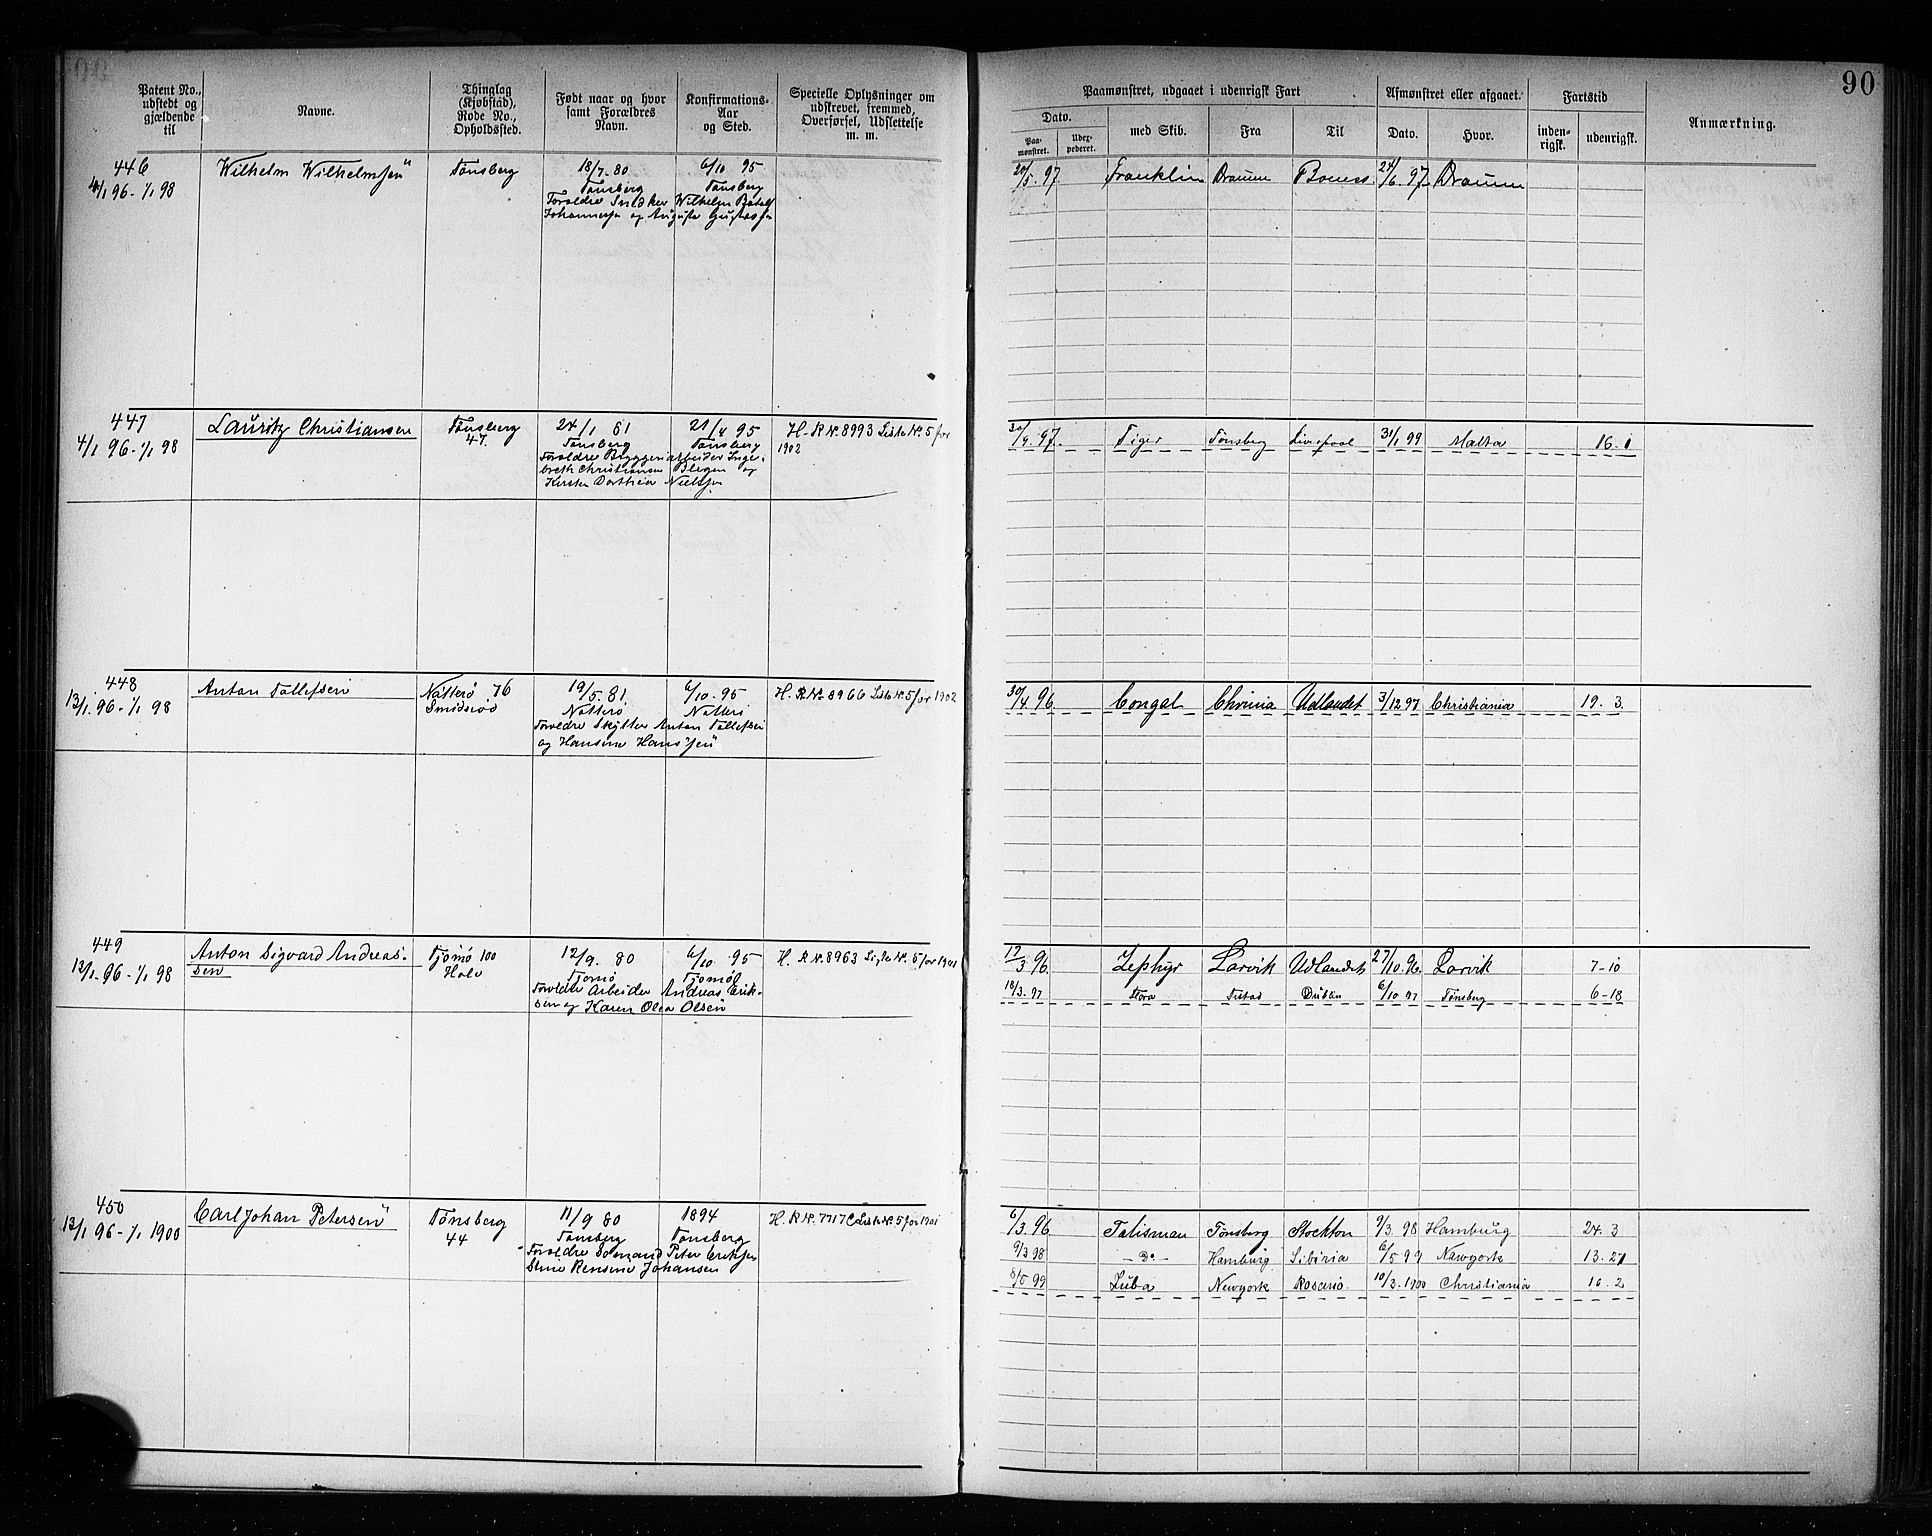 90
Patent No., udstedt og gjældende til
Navne.
Thinglag (Kjøbstad), Rode No., Opholdssted.
Født naar og hvor samt Forældres Navn.
Konfirmations-Aar og Sted.
Specielle Oplysninger om udskrevet, fremmed, Overførsel, Udslettelse m. m.
Paamønstret, udgaaet i udenrigsk Fart
Dato.
Paa-mønstret.
Uderpederet.
med Skib.
Fra
Til
Afmønstret eller afgaaet.
Dato.
Hvor.
Fartstid
inden-rigsk.
udenrigsk.
Anmærkning.
446
4/1 96 - 1/1 98
Wilhelm Wilhelmsen
Tønsberg
18/7 - 80
Tønsberg
6/10 95
Tønsberg
Forældre Snedker Wilhelm
Johannesen og Augusta
20/5. 97.
Franklin
Dramm
Boness
24/6. 97.
Dramm
447
4/1 96 - 1/1 98
Lauritz Christiansen
Tønsberg
47.
24/1 81
Tønsberg
21/4 95
Tønsberg
Forældre Bryggeriarbeider Inge-
breth Christiansen Blegen og
Kirsten Dorthea Nielsen
H. R № 8993 Liste № 5 for
1902
30/9. 97.
Tiger
Tønsberg
Liverpool
31/1 99
Malta
16. 1
448
13/1. 96 - 1/1 98
Anton Tollefsen
Nøtterø 76
Smidsrød
19/5. 81.
Nøtterø
6/10. 95
Nøtterø
Forældre Skytter Anton Tollefsen
og Hansine Hanssen
H. R № 8966 Liste № 5 for 1902
30/4. 96.
Congal
Chrinia
Udlandet
3/12 97
Christiania
19. 3.
449
13/1. 96 - 1/1 98
Anton Sigvard Andreas-
sen
Tjømø 100
Holv
12/9. 80
Tjømø
6/10. 95
Tjømø
Forældre Arbeider Andreas Erik-
sen og Karen Olea Olsen
H. R № 8963 Liste № 5 for 1901
12/3 96.
Zephyr
Larvik
Udlandet
27/10. 96.
Larvik
7-10
18/3. 97
Flora
Dublin
6/10 97
Tønsberg
6-18
450
13/1 96 - 1/1 1900
Carl Johan Petersen
Tønsberg
44
11/9 80
Tønsberg
1894
Tønsberg
Forældre Sømand Peter Eriksen
Rensine Johansen
H. R № 7717 C Liste № 5 for 1901
6/3. 96.
Talisman
Tønsberg
Stockton
9/3. 98
Hamburg
24. 3
9/3 98
- do -
Hamburg
Sibiria
6/5 99
Newyork
13. 27
8/5 99
Luba
Newyork
Rosario.
10/3. 1900
Christiania
10. 2